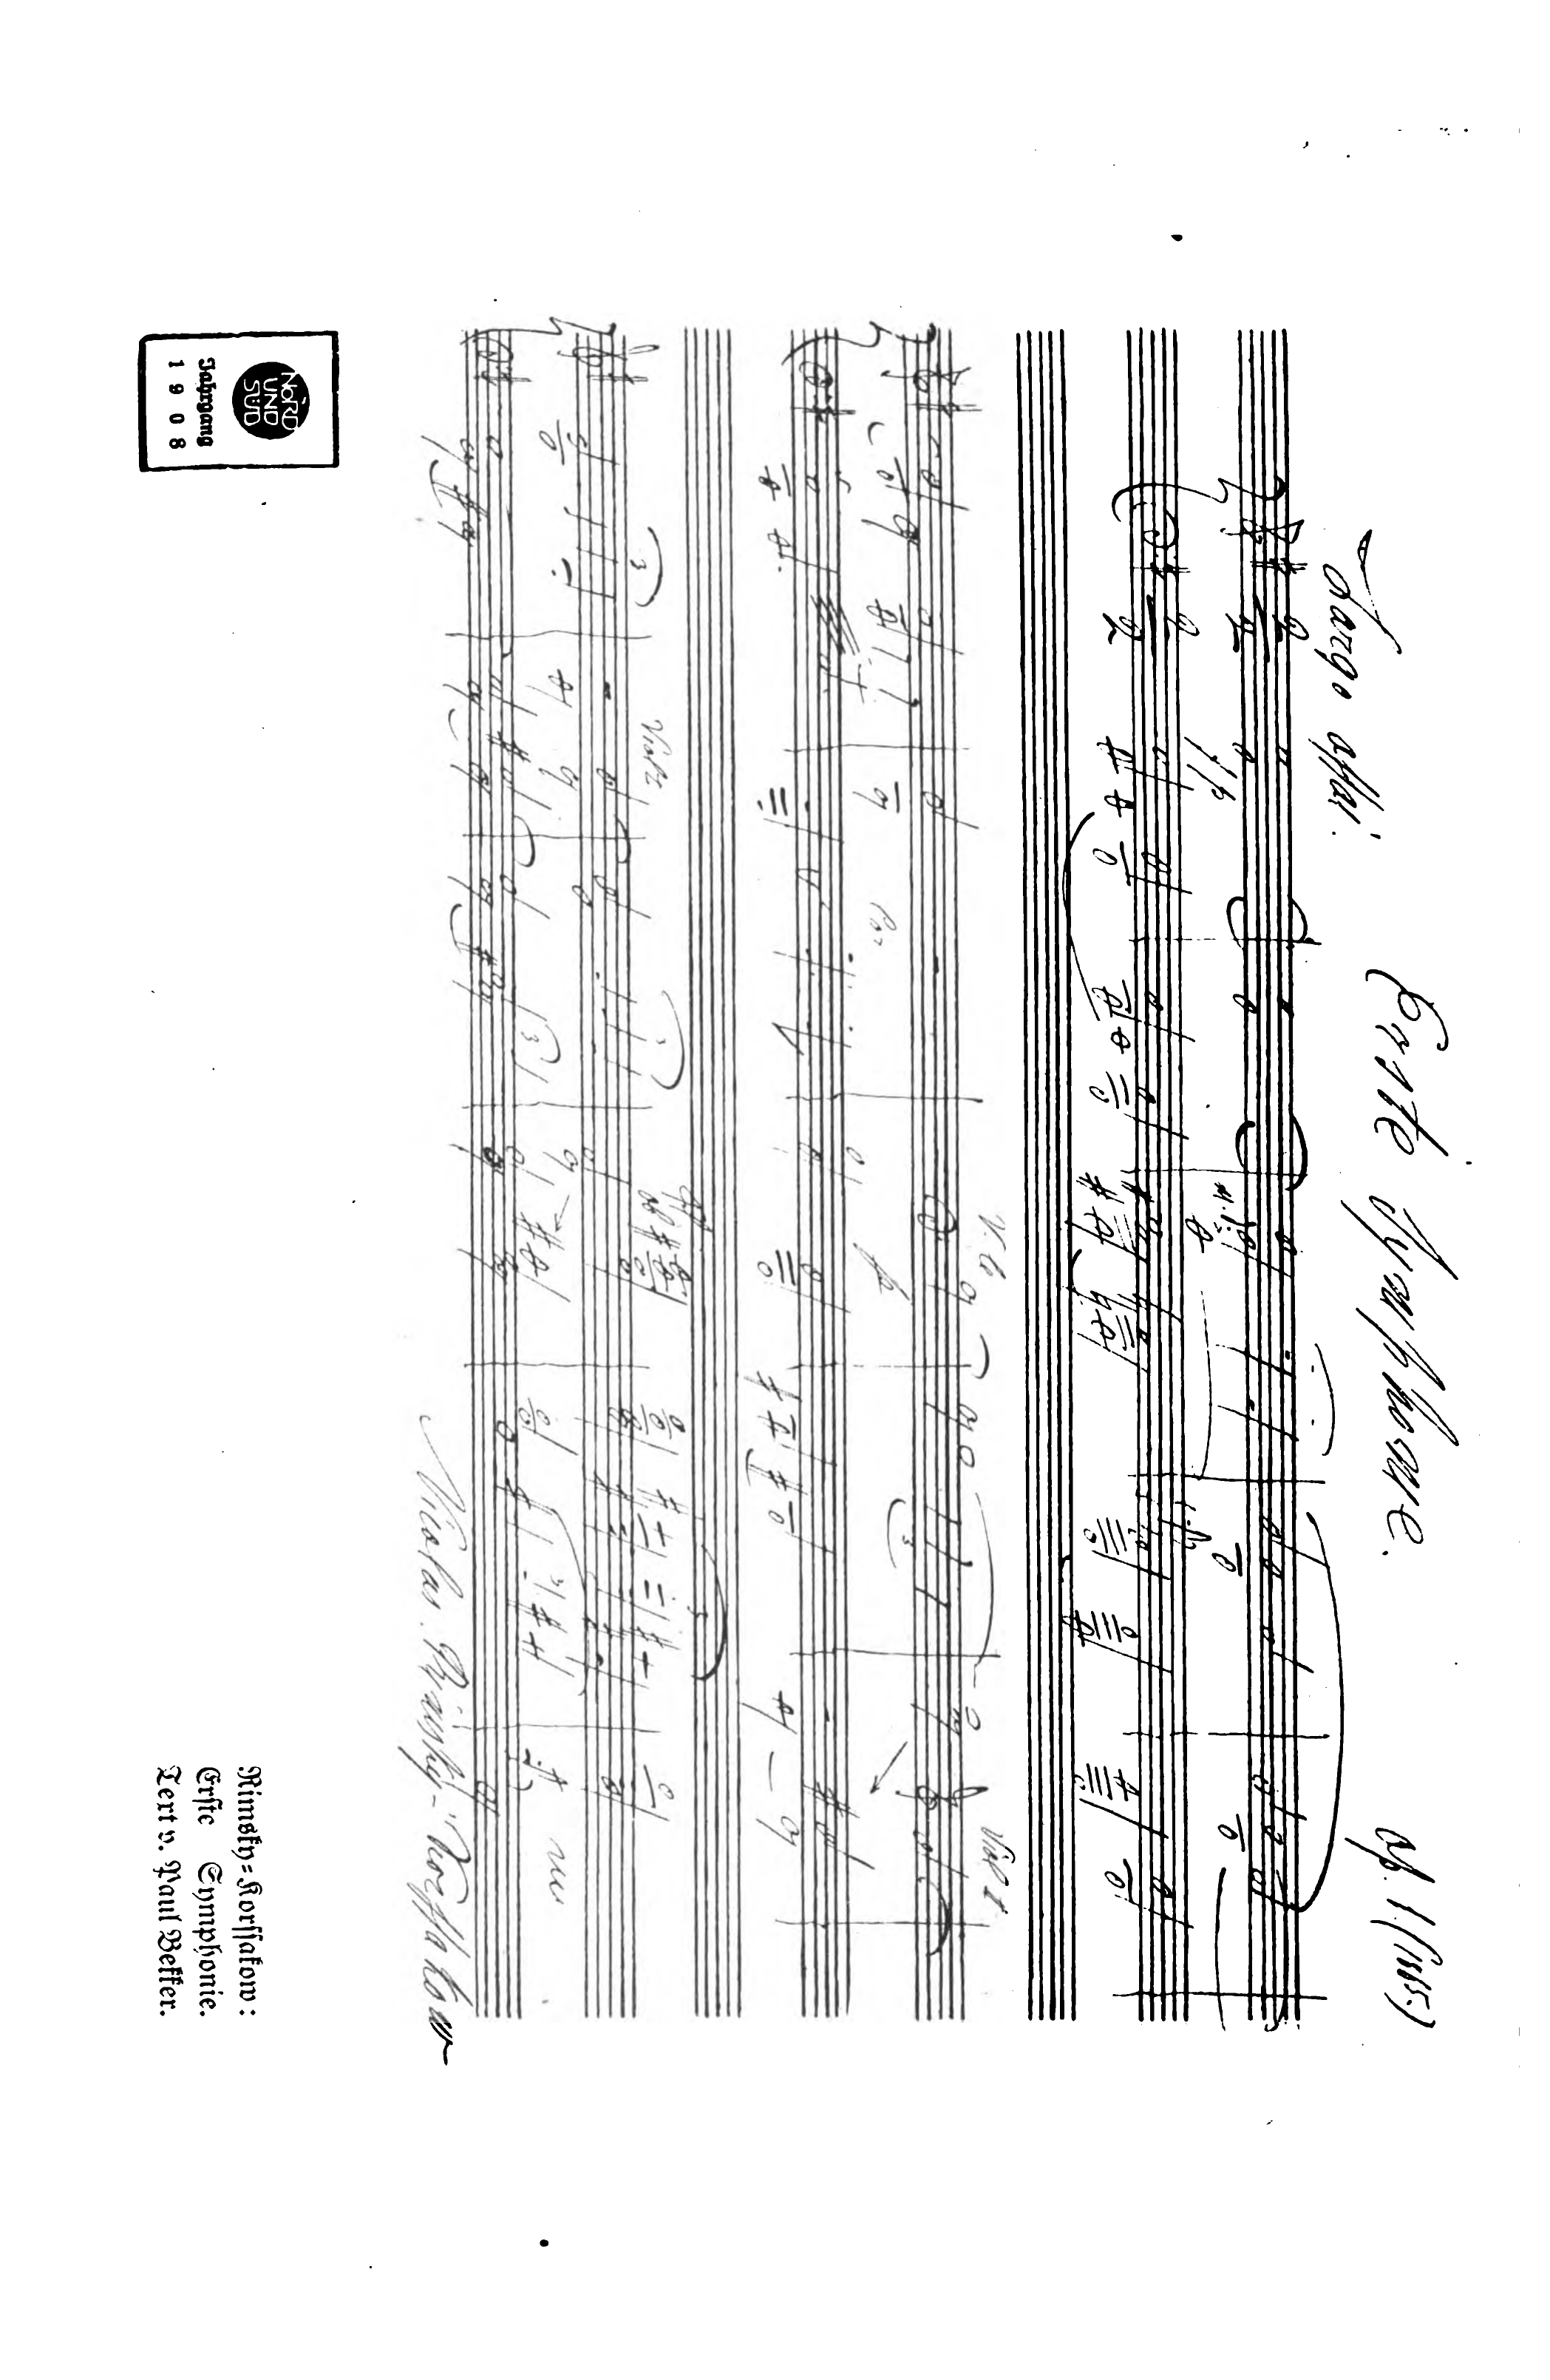 Erste Symphonie. Op. 1 (1865.)
Largo assai.
Viol 2
Viol 1
Nicolas Rimsky-Korssakow
NORD
UND
SÜD
Jahrgang
1908
Rimsky=Korssakow:
Erste Symphonie.
Text v. Paul Bekker.